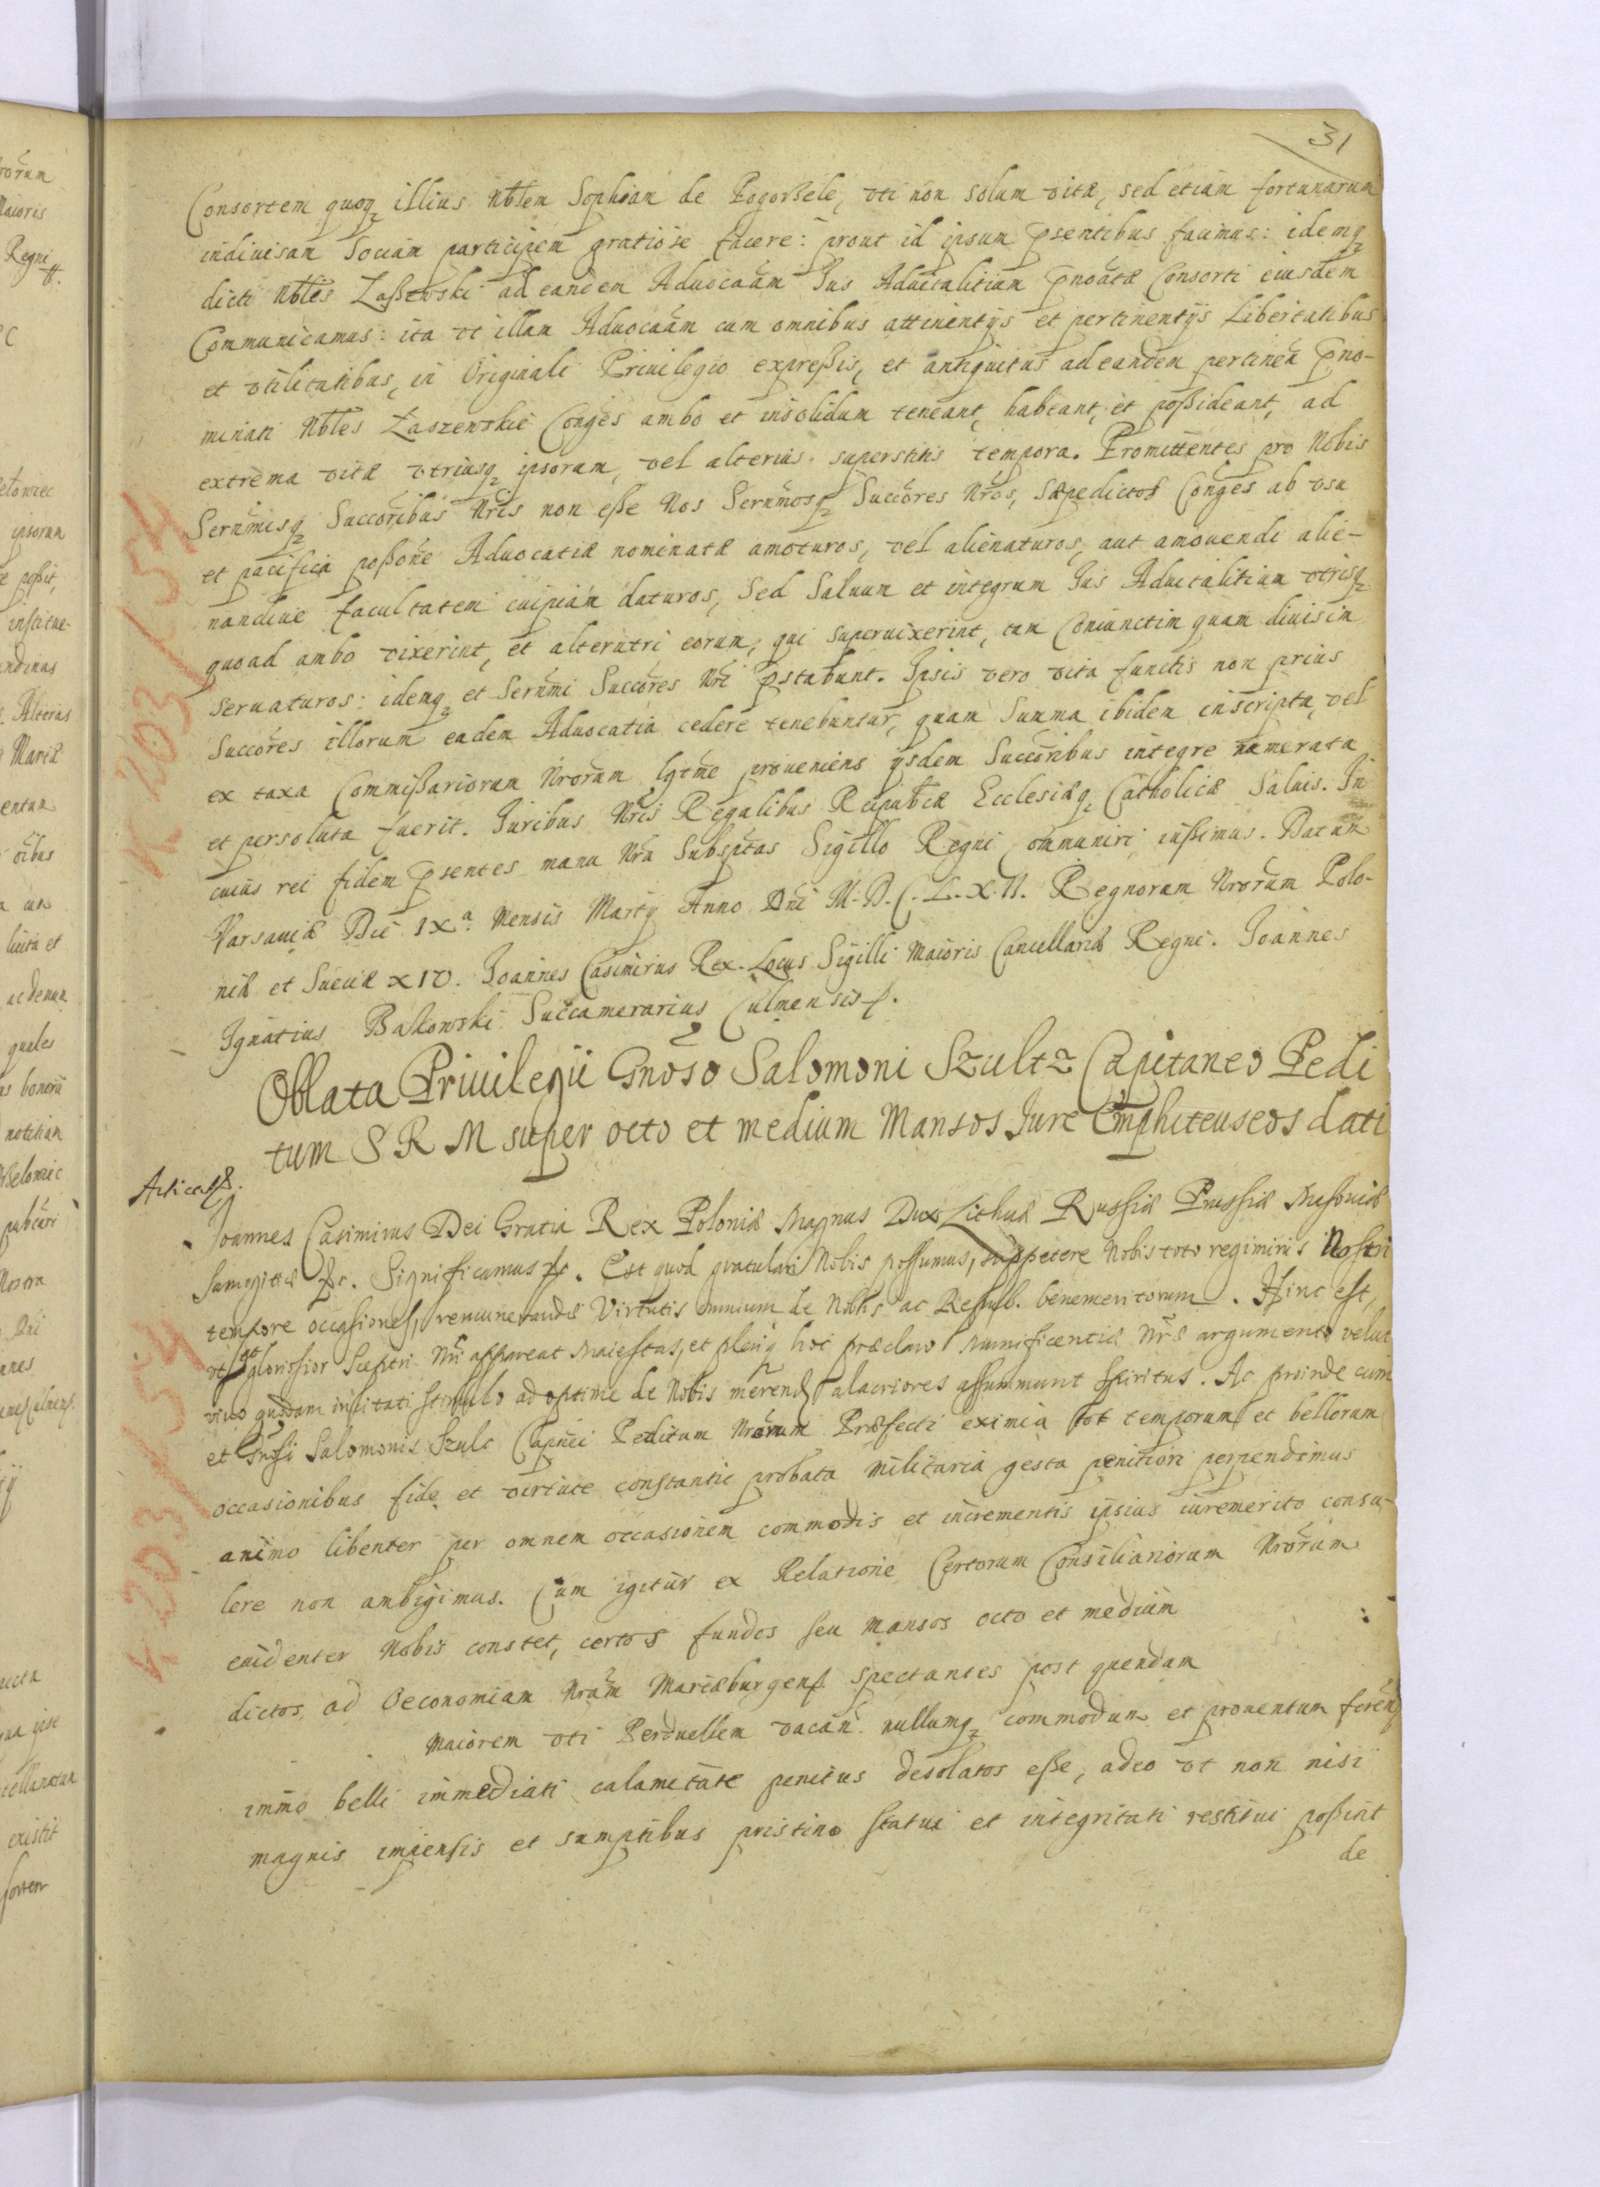 31
Consortem quoq illius Nblem Sophiam de Pogorßele, vti non solum vitæ, sed etiam fortunarum
indiuisam Sociam participem gratiose facere: prout id ipsum pſentibus facimus: idemq
dicti Nbles Zaßewski ad eandem Aduocaãm Ius Aduitalitium pnoatæ Consorti eiusdem
Communicamus: ita vt illam Aduocaãm cum omnibus attinentijs et pertinentijs Libertatibus
et vtilitatibus, in Originali Priuilegio expreßis, et antiquitus ad eandem pertinen pno-
minati Nbles Zaszewskie Conges ambo et insolidum teneant, habeant, et poßideant, ad
extrema vitæ vtriusq ipsorum, vel alterius superstitis tempora. Promittentes pro Nobis
Sernmisq Succoribus Nris non eße Nos Sernmosq Succores Nros, sæpedictos Conges ab vsu
et pacifica poßone Aduocatiæ nominatæ amoturos, vel alienaturos, aut amouendi alie-
nandiue facultatem cuipiam daturos, Sed Saluum et integrum Ius Aduitalitium vtrisq
quoad ambo vixerint, et alterutri eorum, qui superuixerint, tam coniunctim quam diuisim
seruaturos: idemq et Sernmi Succores Nri pstabunt. Ipsis vero vita functis non prius
Succores illorum eadem Aduocatia cedere tenebuntur, quam Summa ibidem inscripta, vel
ex taxa Commißariorum Nrorum lgtme proueniens ijsdem Succoribus integre numerata
et persoluta fuerit. Iuribus Nris Regalibus Reipubcæ Ecclesiæq Catholicæ Saluis. In
cuius rei fidem pſentes manu Nra Subsptas Sigillo Regni communiri iußimus. Datum
Varsauiæ Die IXa Mensis Martij Anno Dni M.D.C.L.X.II. Regnorum Nrorum Polo-
niæ et Sueciæ XIV. Joannes Casimirus Rex. Locus Sigilli Maioris Cancellariæ Regni. Joannes
Ignatius Bakowski Succamerarius Culmensis
Oblata Priuilegii Gnoso Salomoni Szultz Capitaneo Pedi
tum S R M super octo et medium Mansos Jure Emphiteuseos dati
Joannes Casimirus Dei Gratia Rex Poloniæ Magnus Dux Lithuæ Russiæ Prussiæ Masouiæ
Samogitiæ &c. Significamus &c. Est quod gratulari Nobis possumus, suppetere Nobis toto regiminis Nostri
tempore occasiones, remunerandæ Virtutis omnium de Nobis ac Repub. benemeritorum. Hinc est,
vt et gloriosior Sceptri Nri appareat Maiestas, et pleriq hoc præclaro munificentiæ Nræ argumento velut
viuo quodam incitati stimulo ad optime de Nobis merend alacriores assummunt spiritus. Ac proinde cum
et Gnosi Salomonis Szulc Capnei Peditum Nrorum Præfecti eximia tot temporum et bellorum
occasionibus fide et virtute constantie probata militaria gesta penitiori perpendimus
animo libenter per omnem occasionem commodis et incrementis ipsius iuremerito consu-
lere non ambigimus. Cum igitur ex Relatione Certorum Consiliariorum Nrorum
euidenter Nobis constet, certos fundos seu mansos octo et medium
dictos ad Oeconomiam Nram Mariæburgens spectantes post quendam
Maiorem vti Perduellem vacan nullumq commodum et prouentum feren
immo belli immediati calamitate penitus desolatos eße, adeo vt non nisi
magnis impensis et sumptibus pristino statui et integritati restitui poßint
de